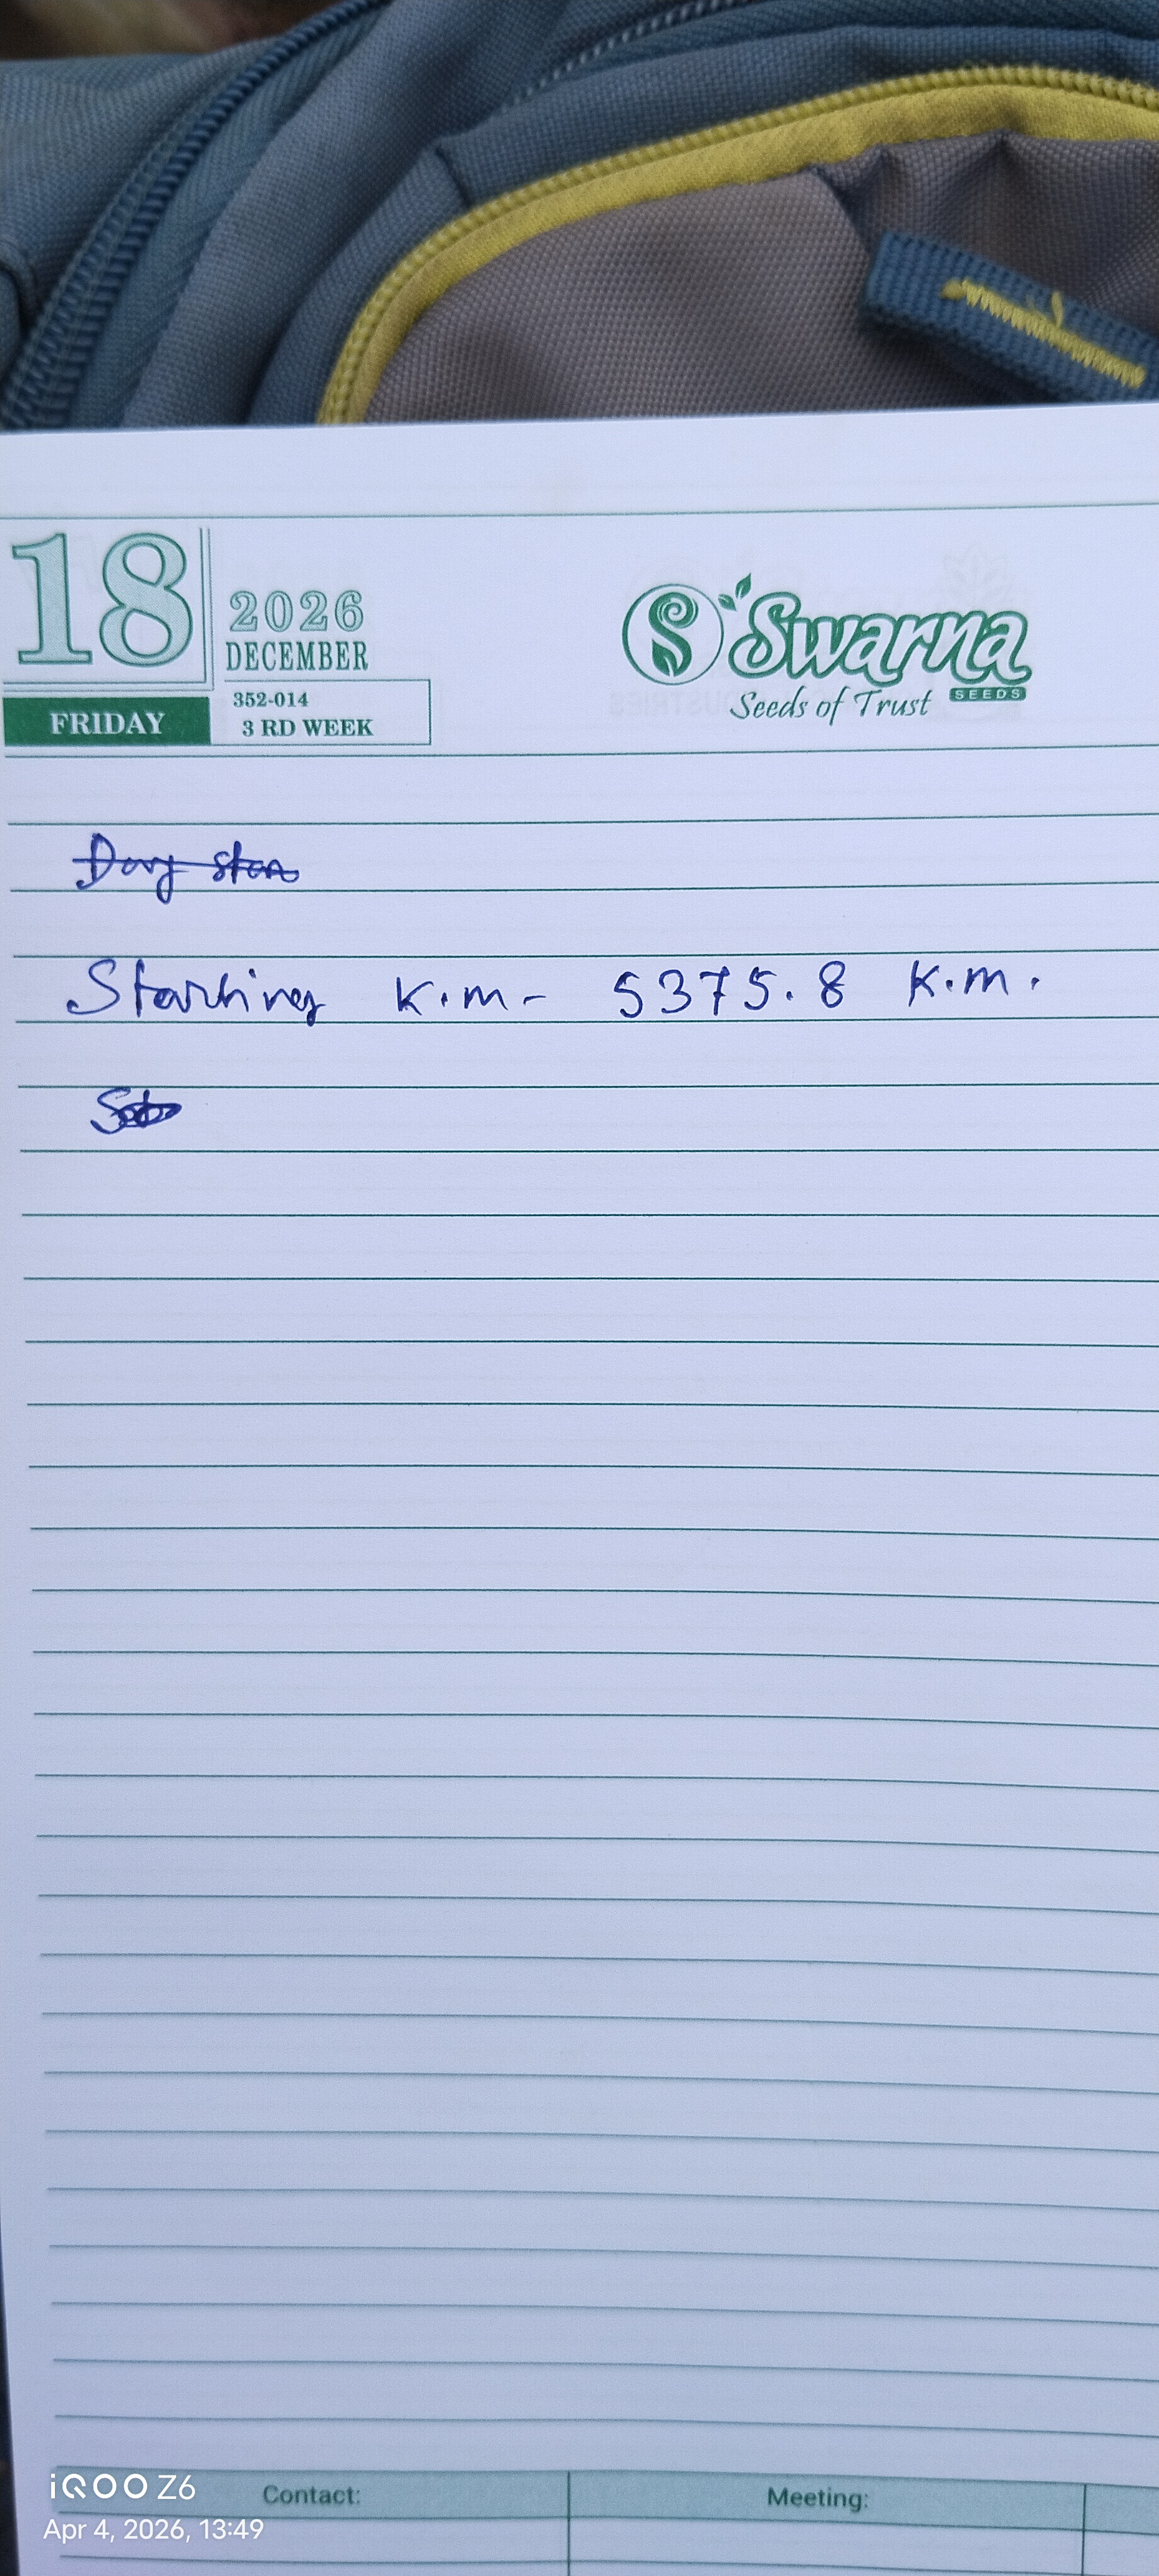 18
2026
DECEMBER
FRIDAY
352-014
3 RD WEEK
Swarna
SEEDS
Seeds of Trust
Starting K.m- 5375.8 K.m.
Contact:
Meeting:
iQOO Z6
Apr 4, 2026, 13:49